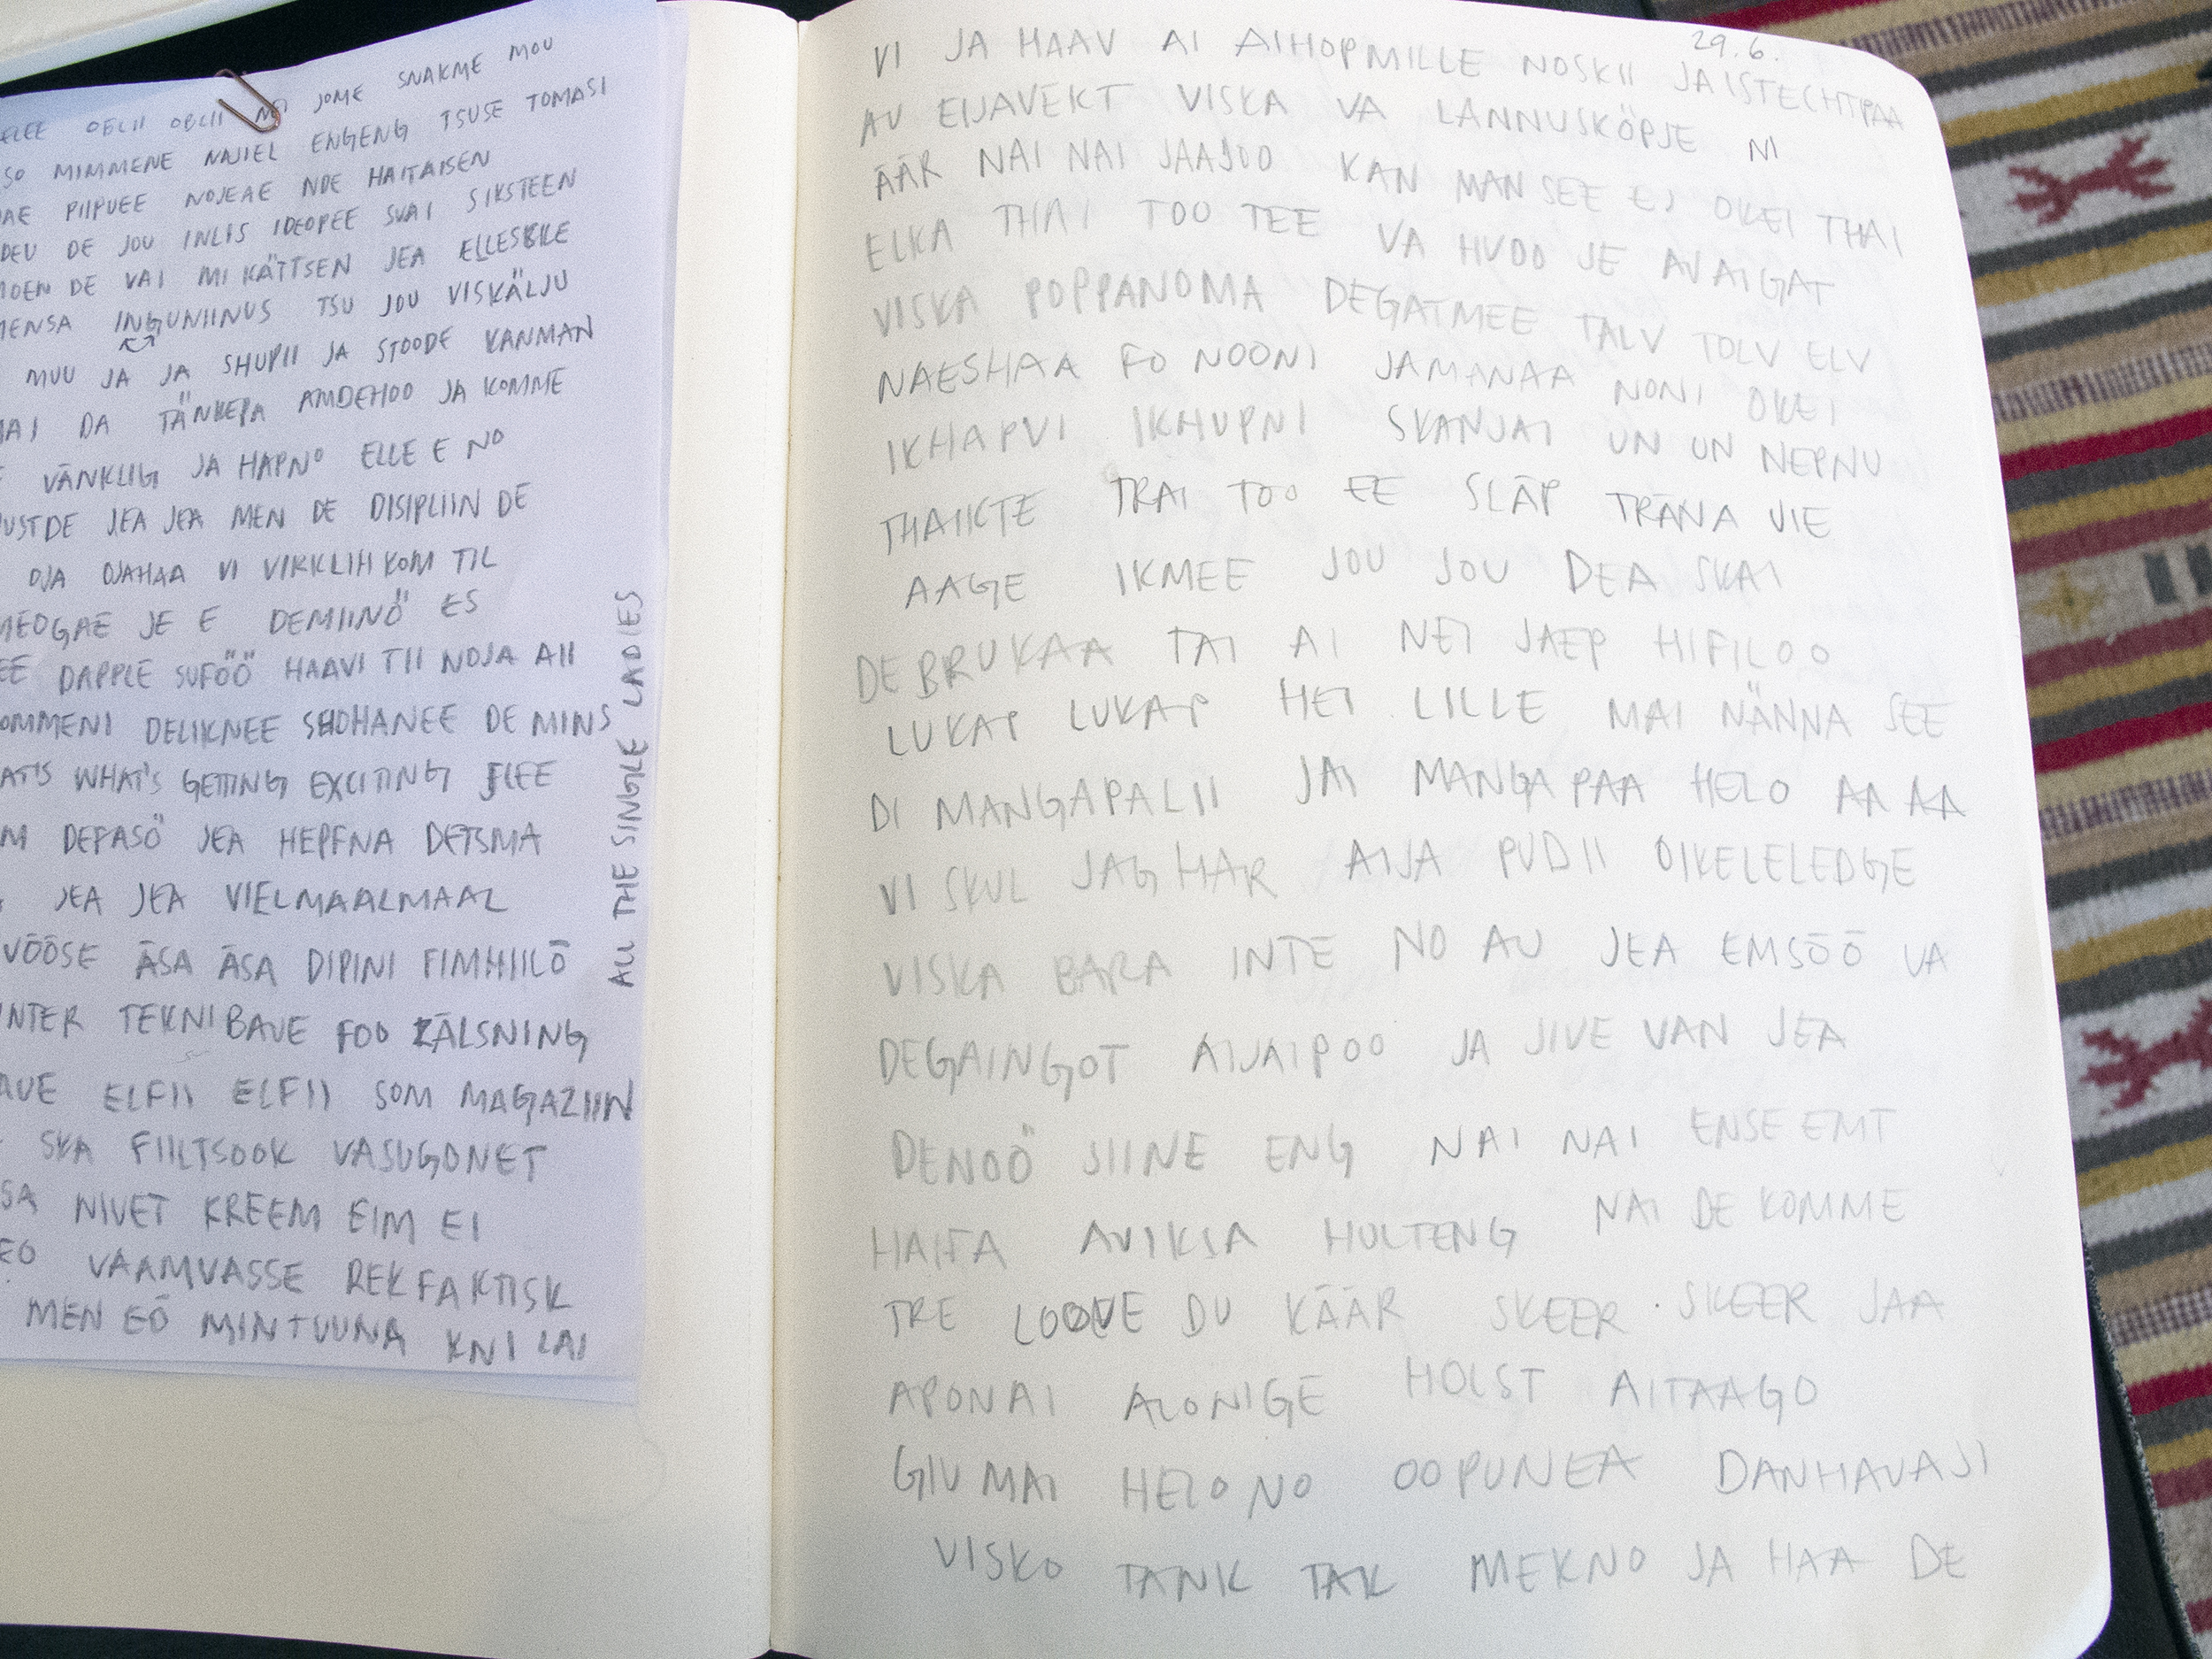 OELII OELII JOME SNAKME MOU
SO MIMMENE NAJIEL ENGENG TSUSE TOMASI
PIIPUEE NOJEAE NDE HAITAISEN
DE JOU INLIS IDEOPEE SVAI SIKSTEEN
DE VAI MI KÄTTSEN JEA
INGUNIINUS TSU JOU VISKÄLJU
MUU JA JA SHUPII JA STOODE KANMAN
DA TÄNKEPA AMDEHOO JA KOMME
VÄNKLIG JA HAPNO ELLE E NO
JEA JEA MEN DE DISIPLIIN DE
OJA OJAHAA VI VIRKLIH KOM TIL
JE E DEMIINÖ ES
DAPPLE SUFÖÖ HAAVI TII NOJA AII
DELIKNEE SHOHANEE DE MINS
WHAT'S GETTING EXCITING FLEE
DEPASÖ JEA HEPFNA DETSMA
JEA JEA VIELMAALMAAL
VÖÖSE ÄSA ÄSA DIPINI FIMHIILÖ
TEKNIBAVE FOO KÄLSNING
ELFII ELFII SOM MAGAZIIN
SKA FIILTSOOK VASUGONET
NIVET KREEM EIM EI
VAAMVASSE REKFAKTISK
MEN EÖ MINTUUNA KNI LAI
ALL THE SINGLE LADIES
29.6.
VI JA HAAV AI AIHOPMILLE NOSKII JAISTECHTPAA
AU EIJAVEKT VISKA VA LANNUSKÖPJE NI
ÄÄR NAI NAI JAAJOO KAN MAN SEE EJ OKEI THAI
ELKA THAI TOO TEE VA HVOO JE AVAIGAT
VISKA POPPANOMA DEGATMEE TALV TOLV ELV
NAESHAA FO NOONI JAMANAA NONI OKEI
IKHAPVI IKHUPNI SVANJAI UN UN NEPNU
THAIIKTE TRAI TOO EE SLÄP TRÄNA VIE
AAGE IKMEE JOU JOU DEA SKAI
DEBRUKAA TAI AI NEI JAEP HIFILOO
LUKAP LUKAP HEI LILLE MAI NÄNNA SEE
DI MANGAPALII JAI MANGAPAA HELO AA AA
VI SKUL JAG HAR AIJA PUDII OIKELELEDGE
VISKA BARA INTE NO AU JEA EMSÖÖ VA
DEGAINGOT AIJAIPOO JA JIVE VAN JEA
DENOÖ SIINE ENG NAI NAI ENSE EMT
HAITA AVIKSA HULTENG NAI DE KOMME
TRE LOOVE DU KÄÄR SKEER SKEER JAA
APONAI ALONIGE HOLST AITAAGO
GIV MAI HELO NO OOPUNEA DANHAVAJI
VISKO TANK TAK MEKNO JA HAA DE